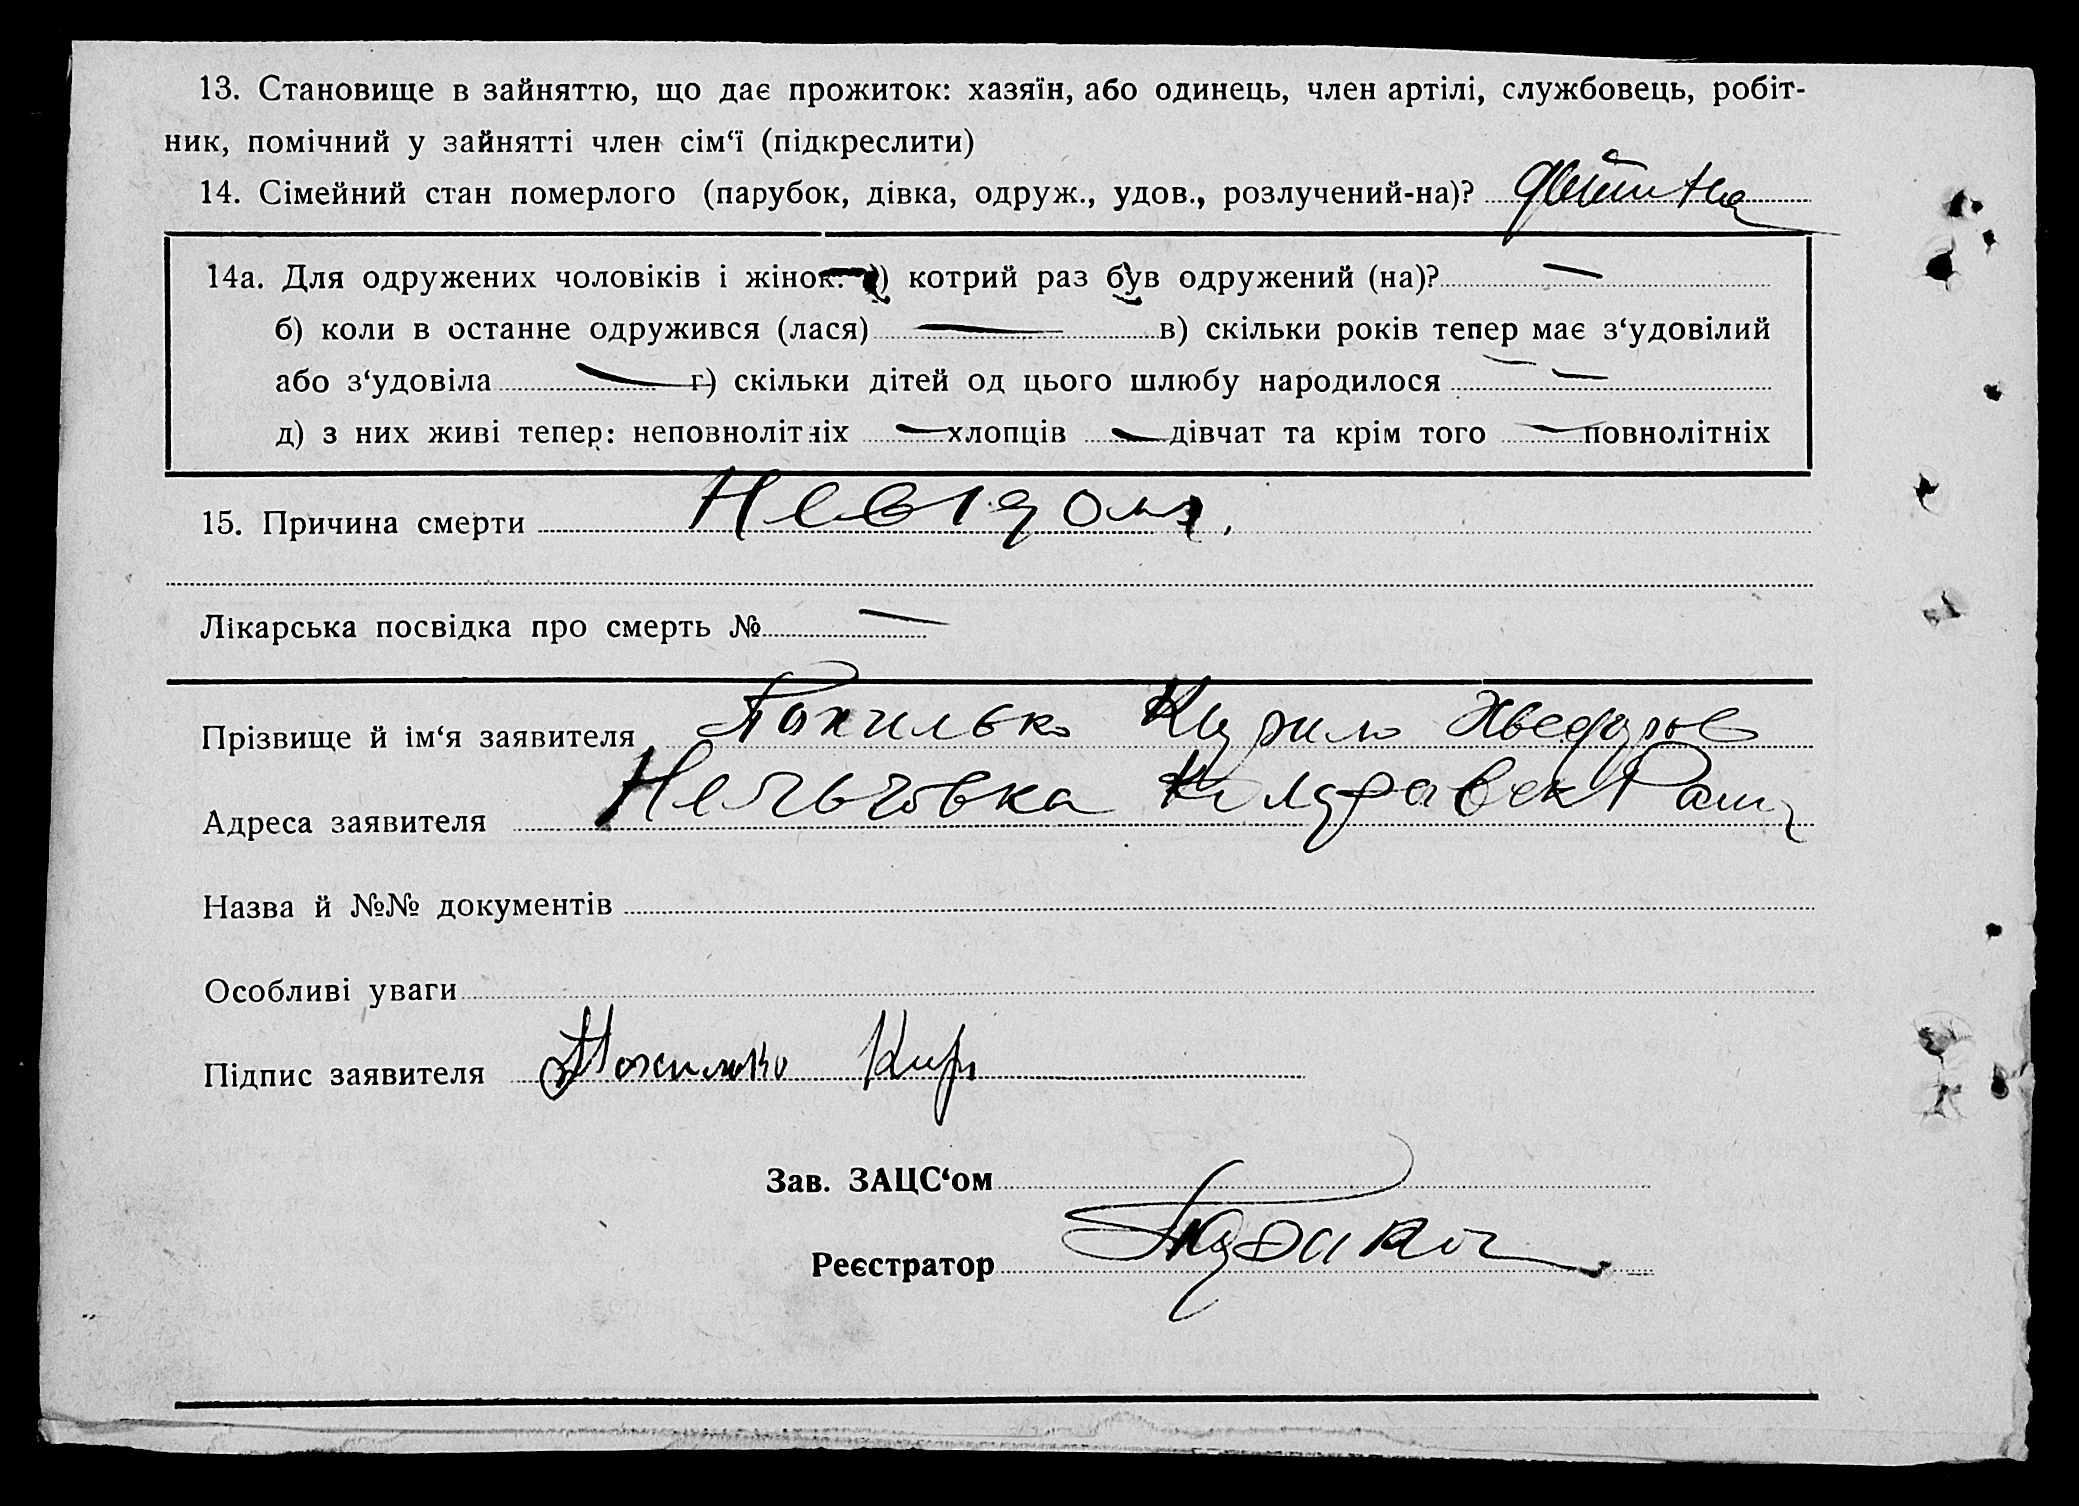 13. Становище в зайняттю, що дає прожиток: хазяїн, або одинець, член артілі, службовець, робіт-
ник, помічний у зайнятті член сім‘ї (підкреслити)
14. Сімейний стан померлого (парубок, дівка, одруж., удов., розлучений-на)?
14а. Для одружених чоловіків і жінок: а) котрий раз був одружений (на)? —
б) коли в останне одружився (лася) — в) скільки років тепер має з‘удовілий
або з‘удовіла — г) скільки дітей од цього шлюбу народилося —
д) з них живі тепер: неповнолітніх — хлопців — дівчат та крім того — повнолітніх
15. Причина смерти Невідома.
Лікарська посвідка про смерть № —
Прізвище й ім‘я заявителя Похилько Кирило Хведоров
Адреса заявителя
Назва й №№ документів
Особливі уваги
Підпис заявителя Похилько Кир
Зав. ЗАЦС‘ом
Реєстратор